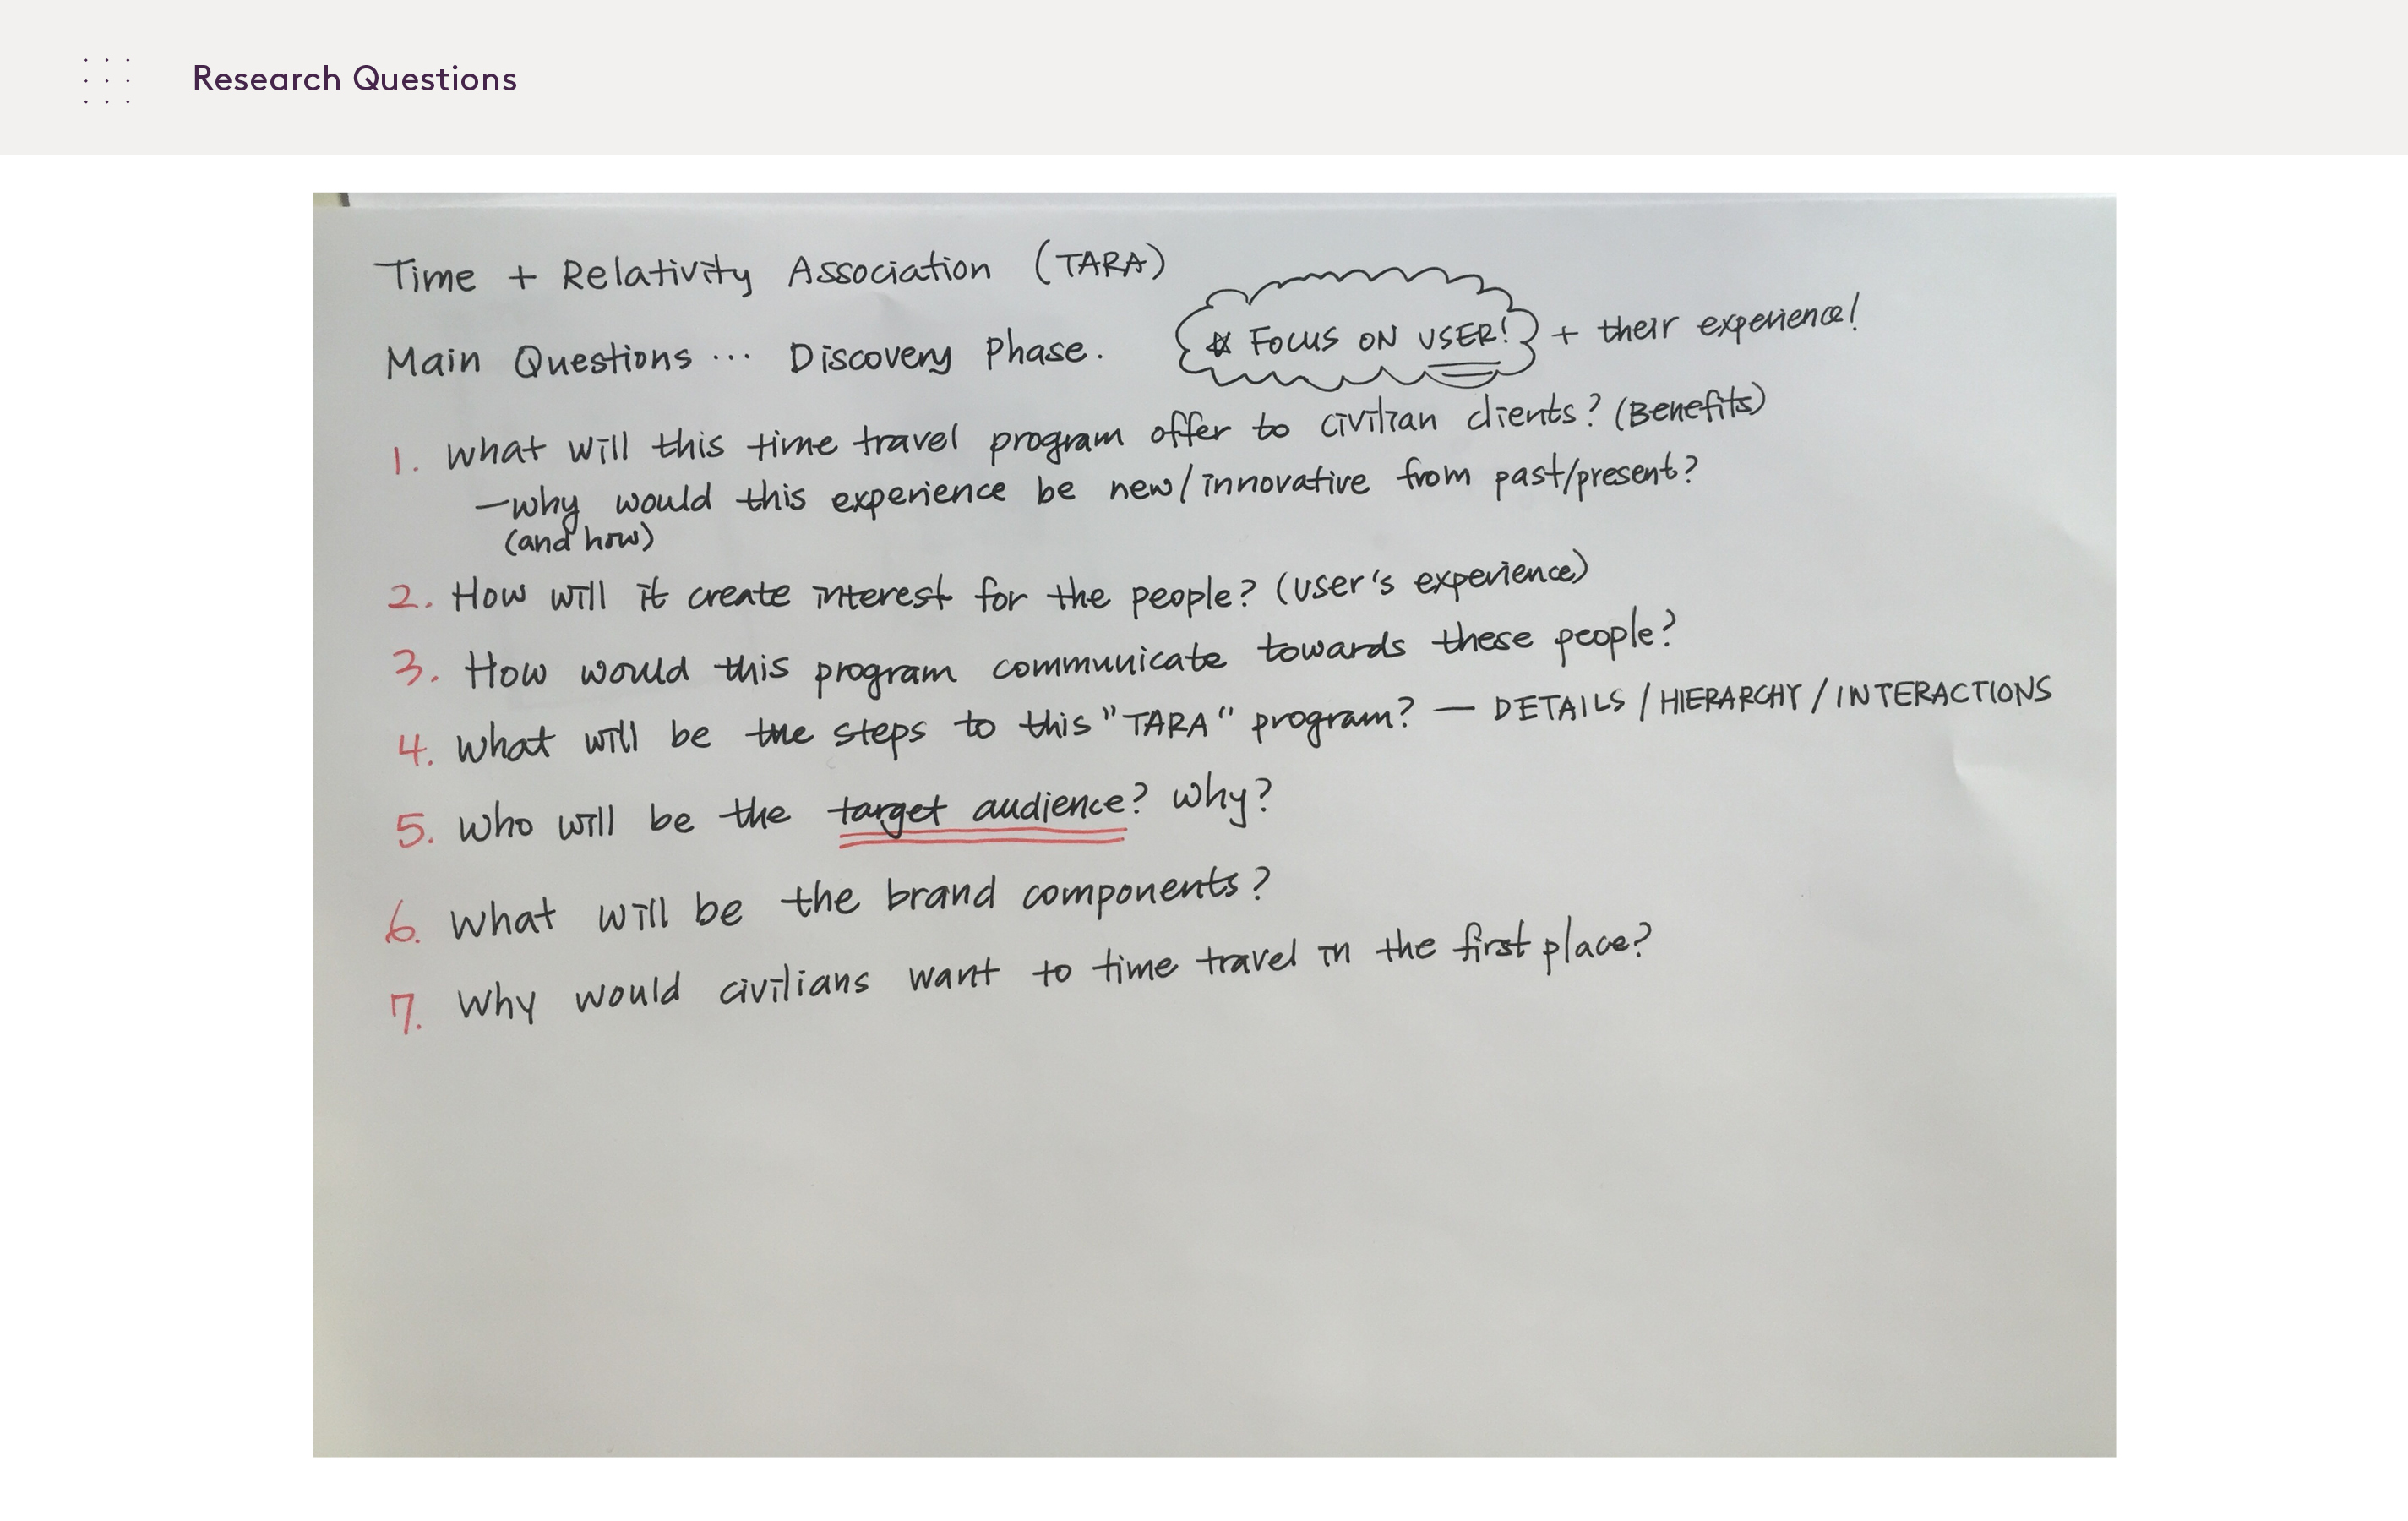 Research Questions
Time + Relativity Association (TARA)
Main Questions ... Discovery Phase.
* FOCUS ON USER! + their experience!
1. What will this time travel program offer to civilian clients? (Benefits)
— why would this experience be new/innovative from past/present?
(and how)
2. How will it create interest for the people? (user's experience)
3. How would this program communicate towards these people?
4. What will be the steps to this "TARA" program? — DETAILS / HIERARCHY / INTERACTIONS
5. Who will be the target audience? why?
6. What will be the brand components?
7. Why would civilians want to time travel in the first place?